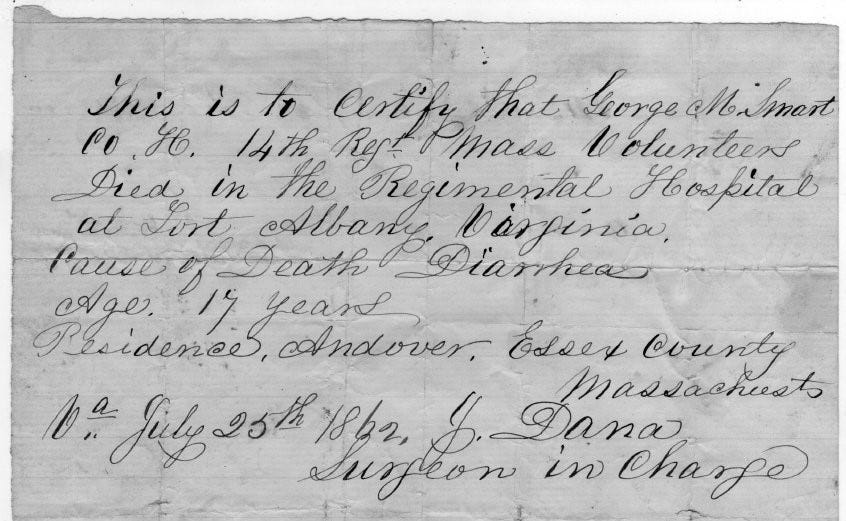 This is to Certify that George M. Smart
Co. H. 14th Regt. Mass Volunteers
Died in the Regimental Hospital
at Fort Albany, Virginia.
Cause of Death Diarrhea
Age. 17 years
Residence, Andover, Essex County
Massachusts
Va.. July 25th 1862. J. Dana
Surgeon in Charge